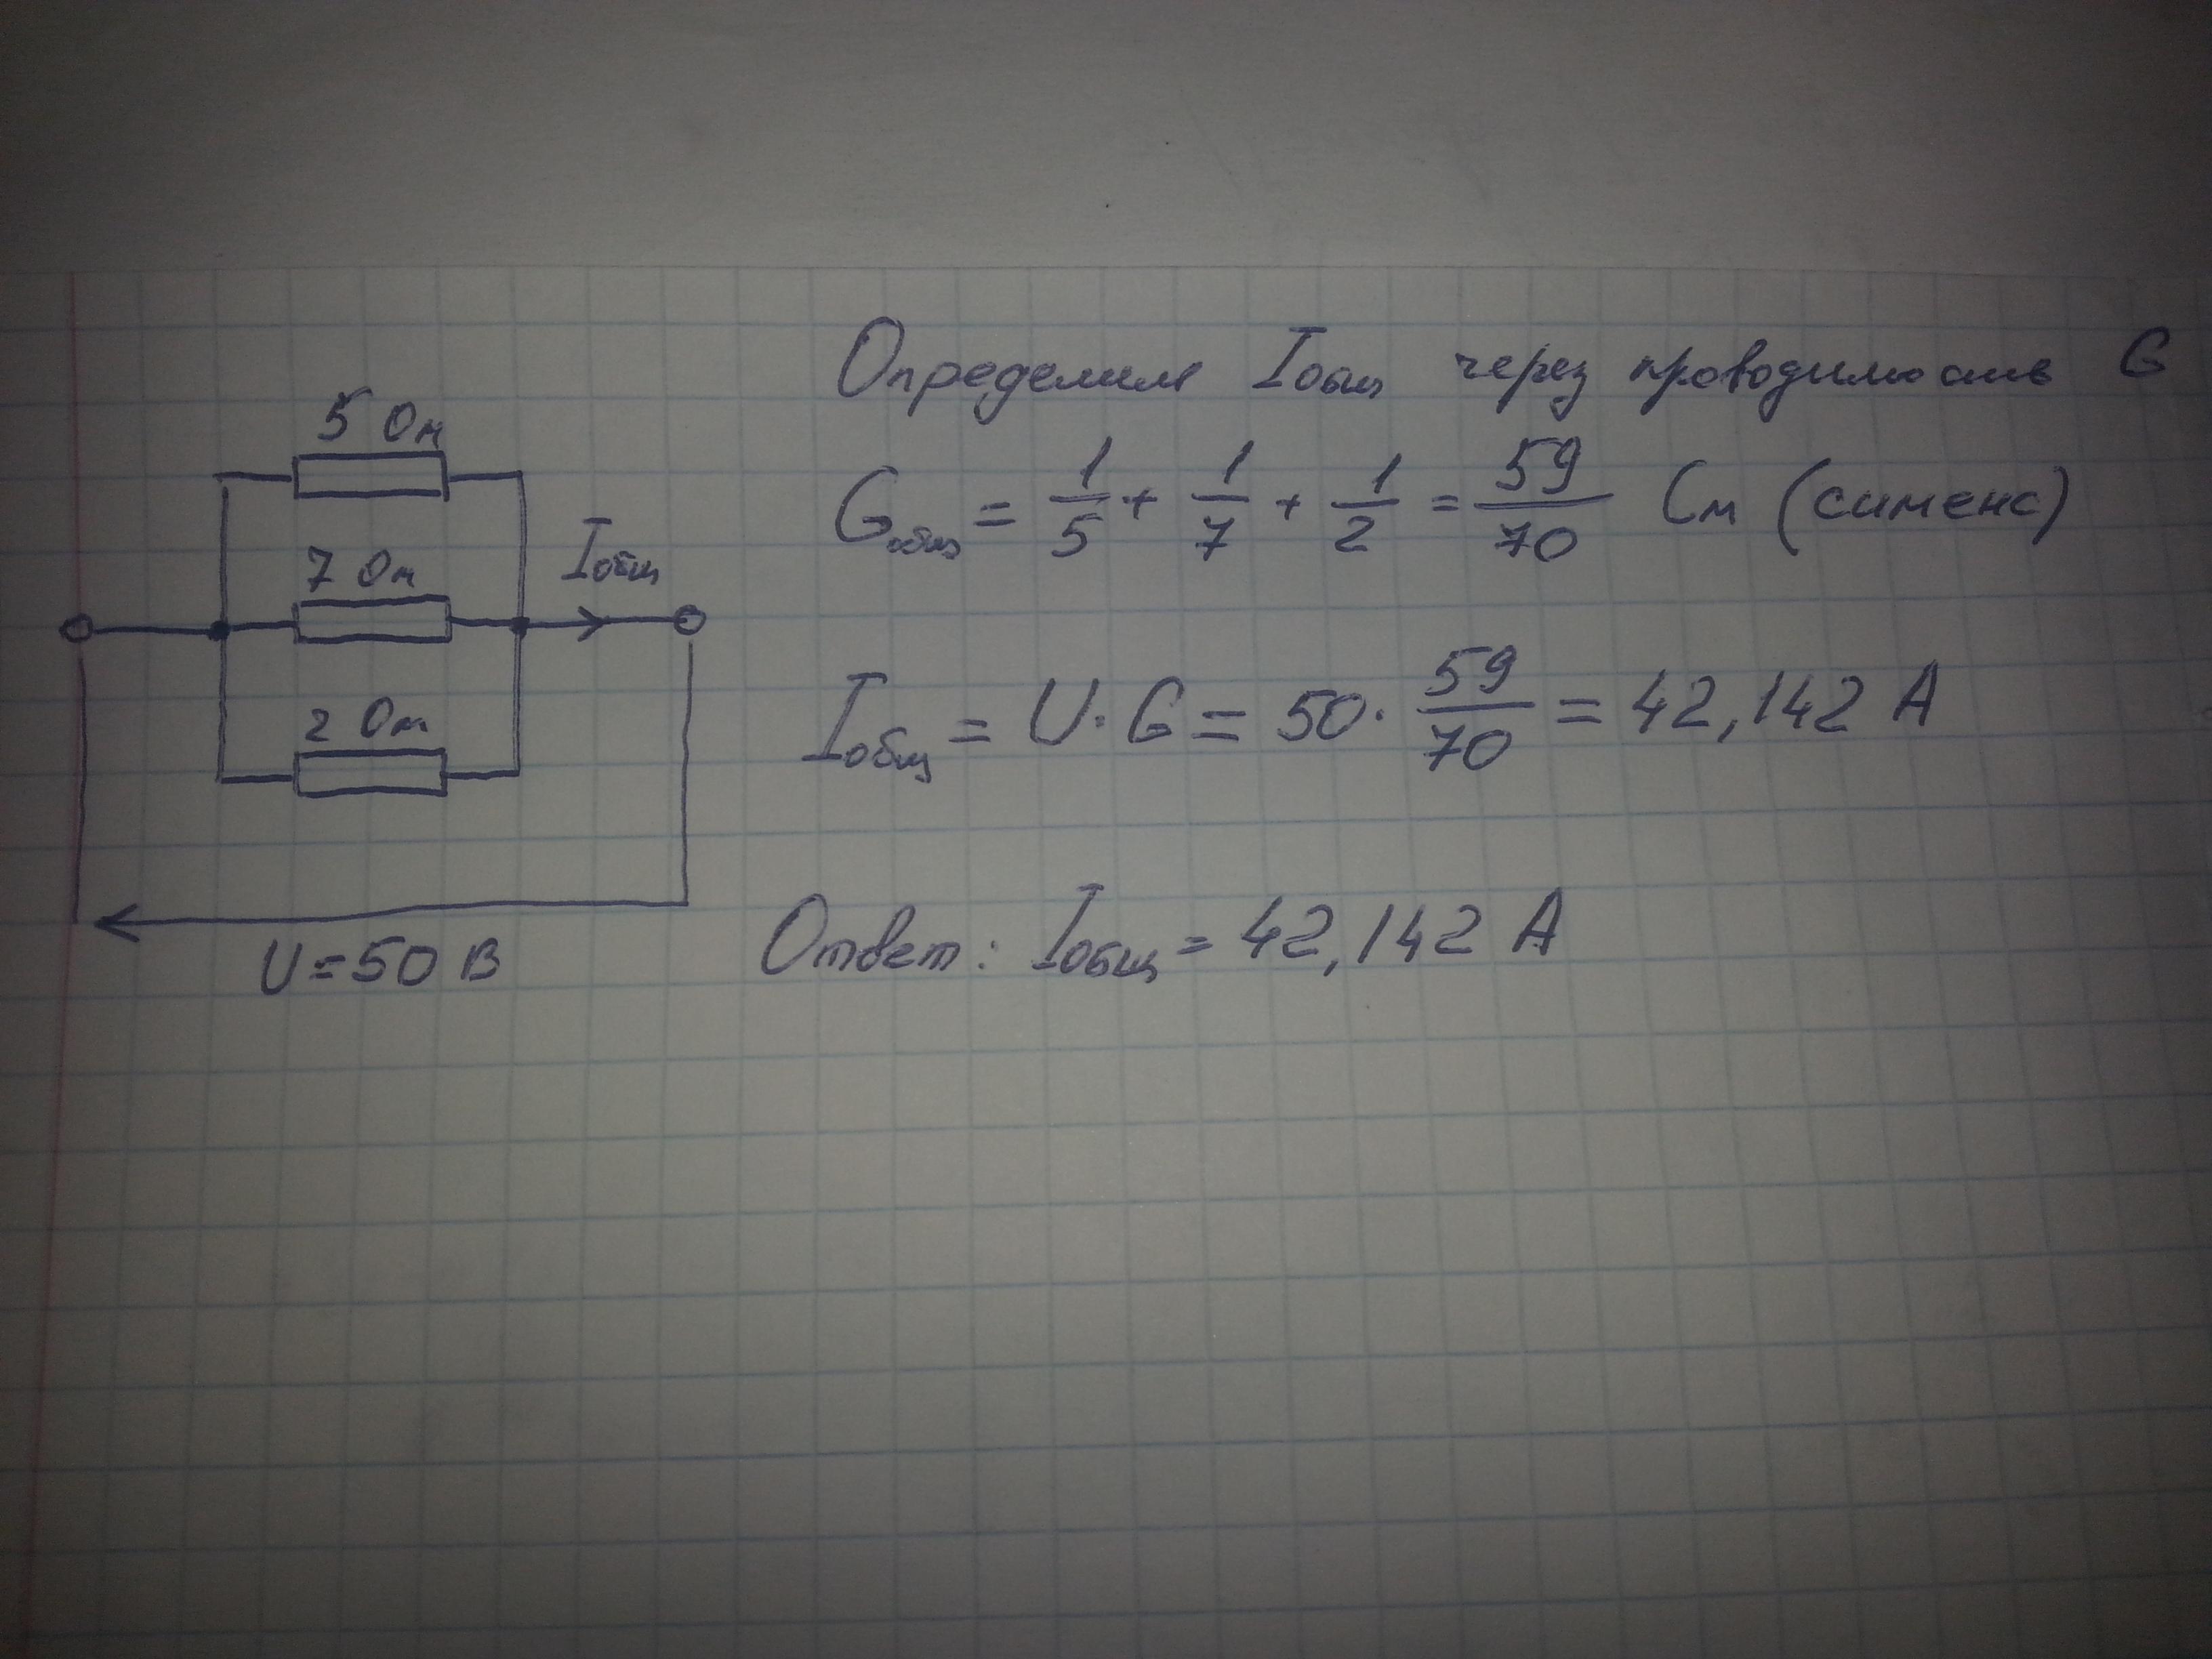 5 Ом
7 Ом
2 Ом
Iобщ
U=50 В
Определим Iобщ через проводимость G
Gобщ = 1/5 + 1/7 + 1/2 = 59/70 См (сименс)
Iобщ = U·G = 50·59/70 = 42,142 А
Ответ: Iобщ = 42,142 А